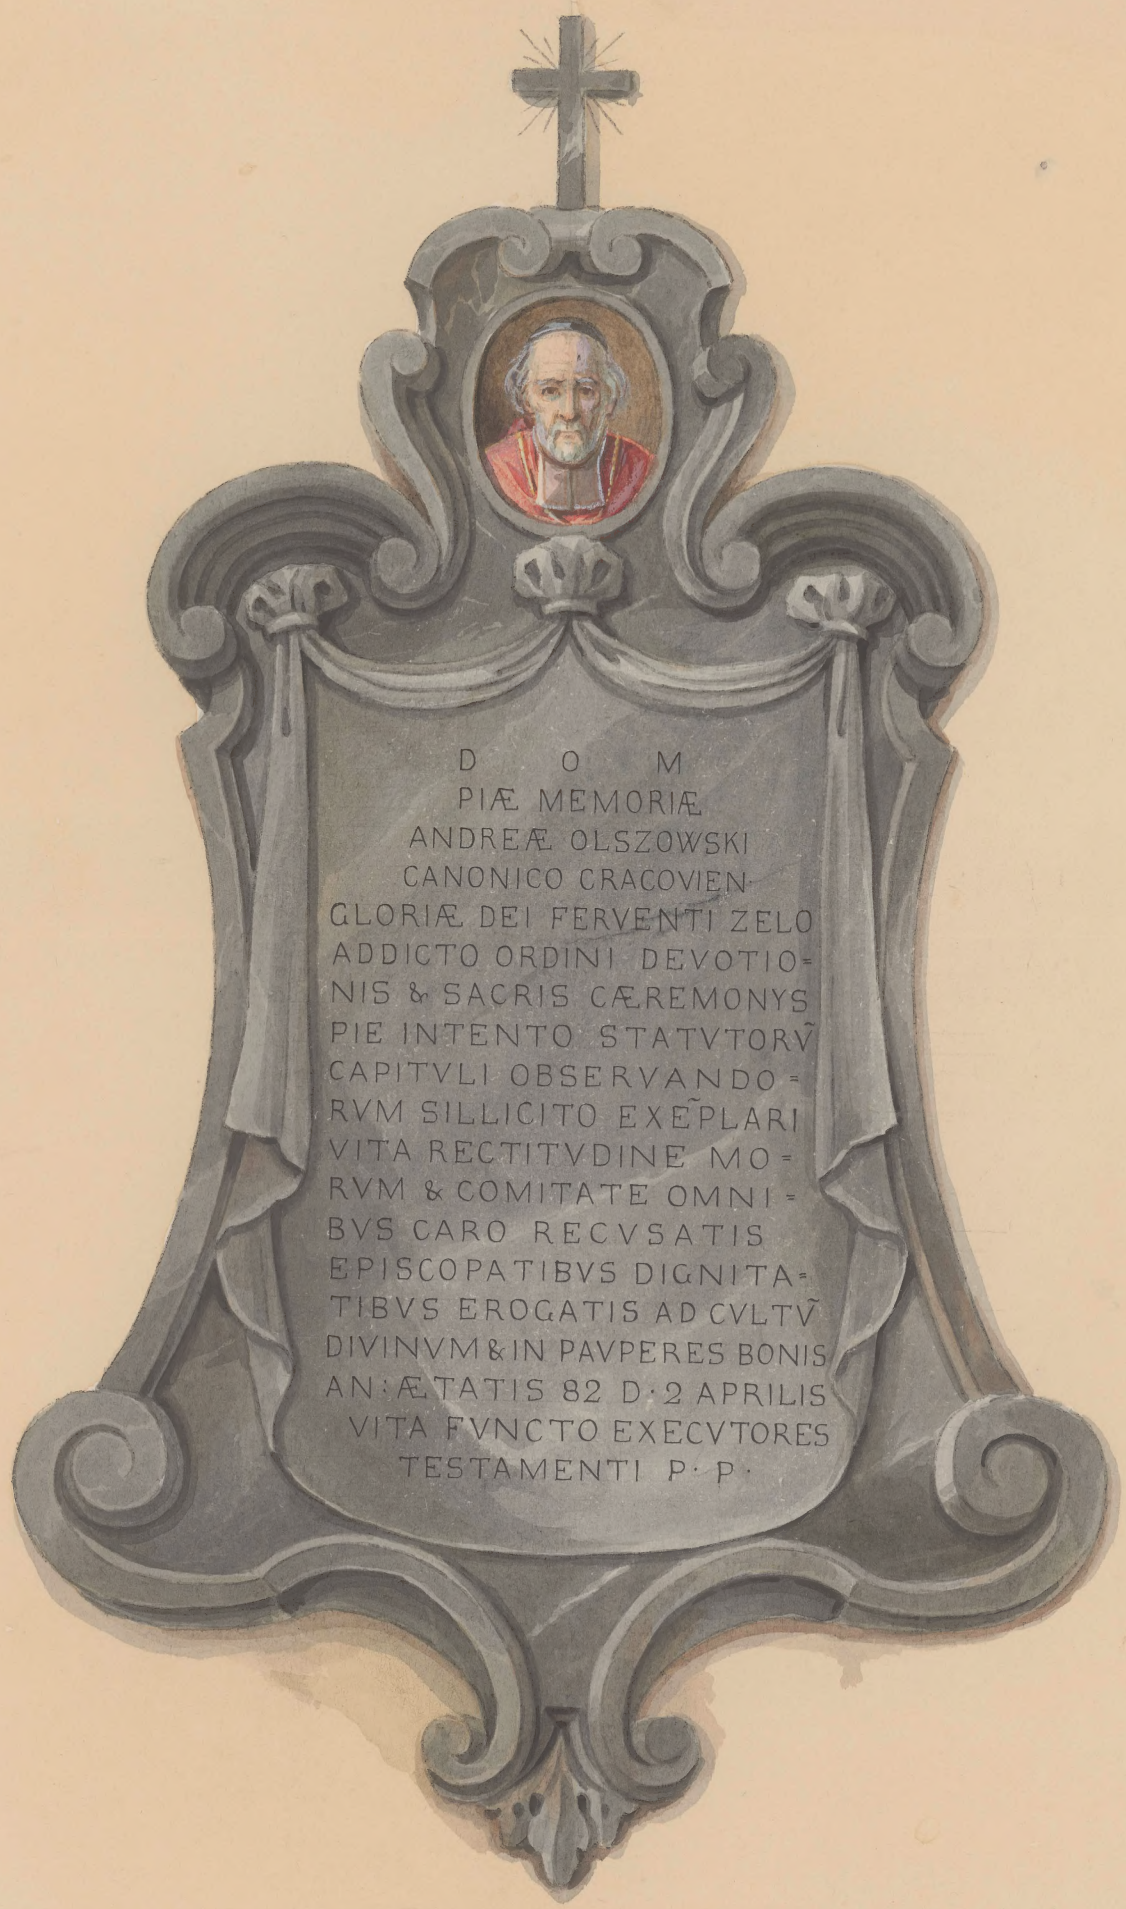 D O M
PIÆ MEMORIÆ
ANDREÆ OLSZOWSKI
CANONICO CRACOVIEN·
GLORIÆ DEI FERVENTI ZELO
ADDICTO ORDINI DEVOTIO=
NIS & SACRIS CÆREMONYS
PIE INTENTO STATVTORṼ
CAPITVLI OBSERVANDO=
RVM SILLICITO EXEP̃LARI
VITA RECTITVDINE MO=
RVM & COMITATE OMNI=
BVS CARO RECVSATIS
EPISCOPATIBVS DIGNITA=
TIBVS EROGATIS AD CVLTṼ
DIVINVM & IN PAVPERES BONIS
AN: ÆTATIS 82 D· 2 APRILIS
VITA FVNCTO EXECVTORES
TESTAMENTI P· P·